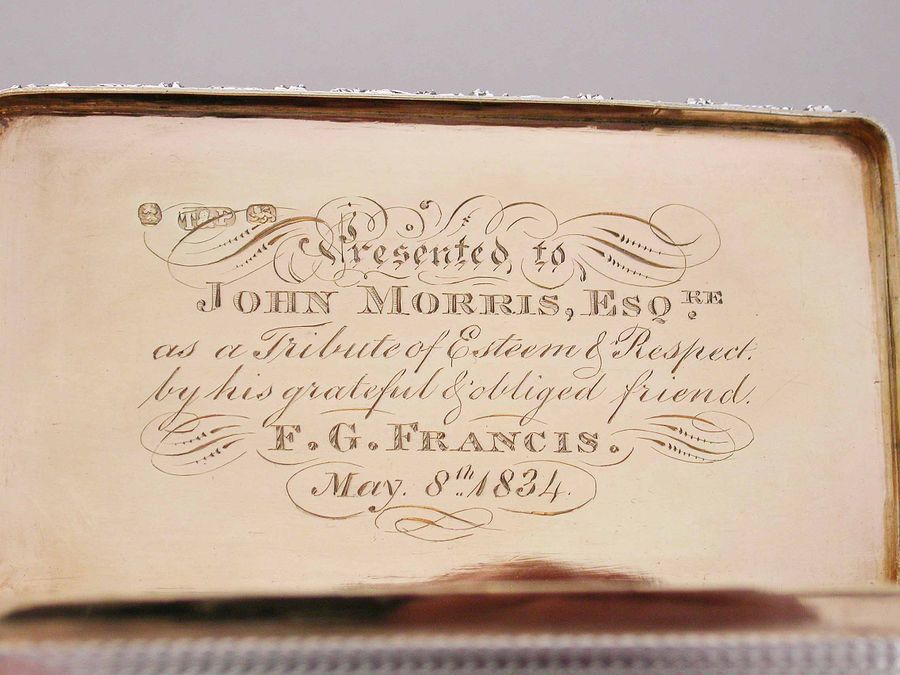 Presented, to,
JOHN MORRIS, ESQRE.
as a Tribute of Esteem & Respect.
by his grateful & obliged friend.
F. G. FRANCIS.
May. 8th. 1834.